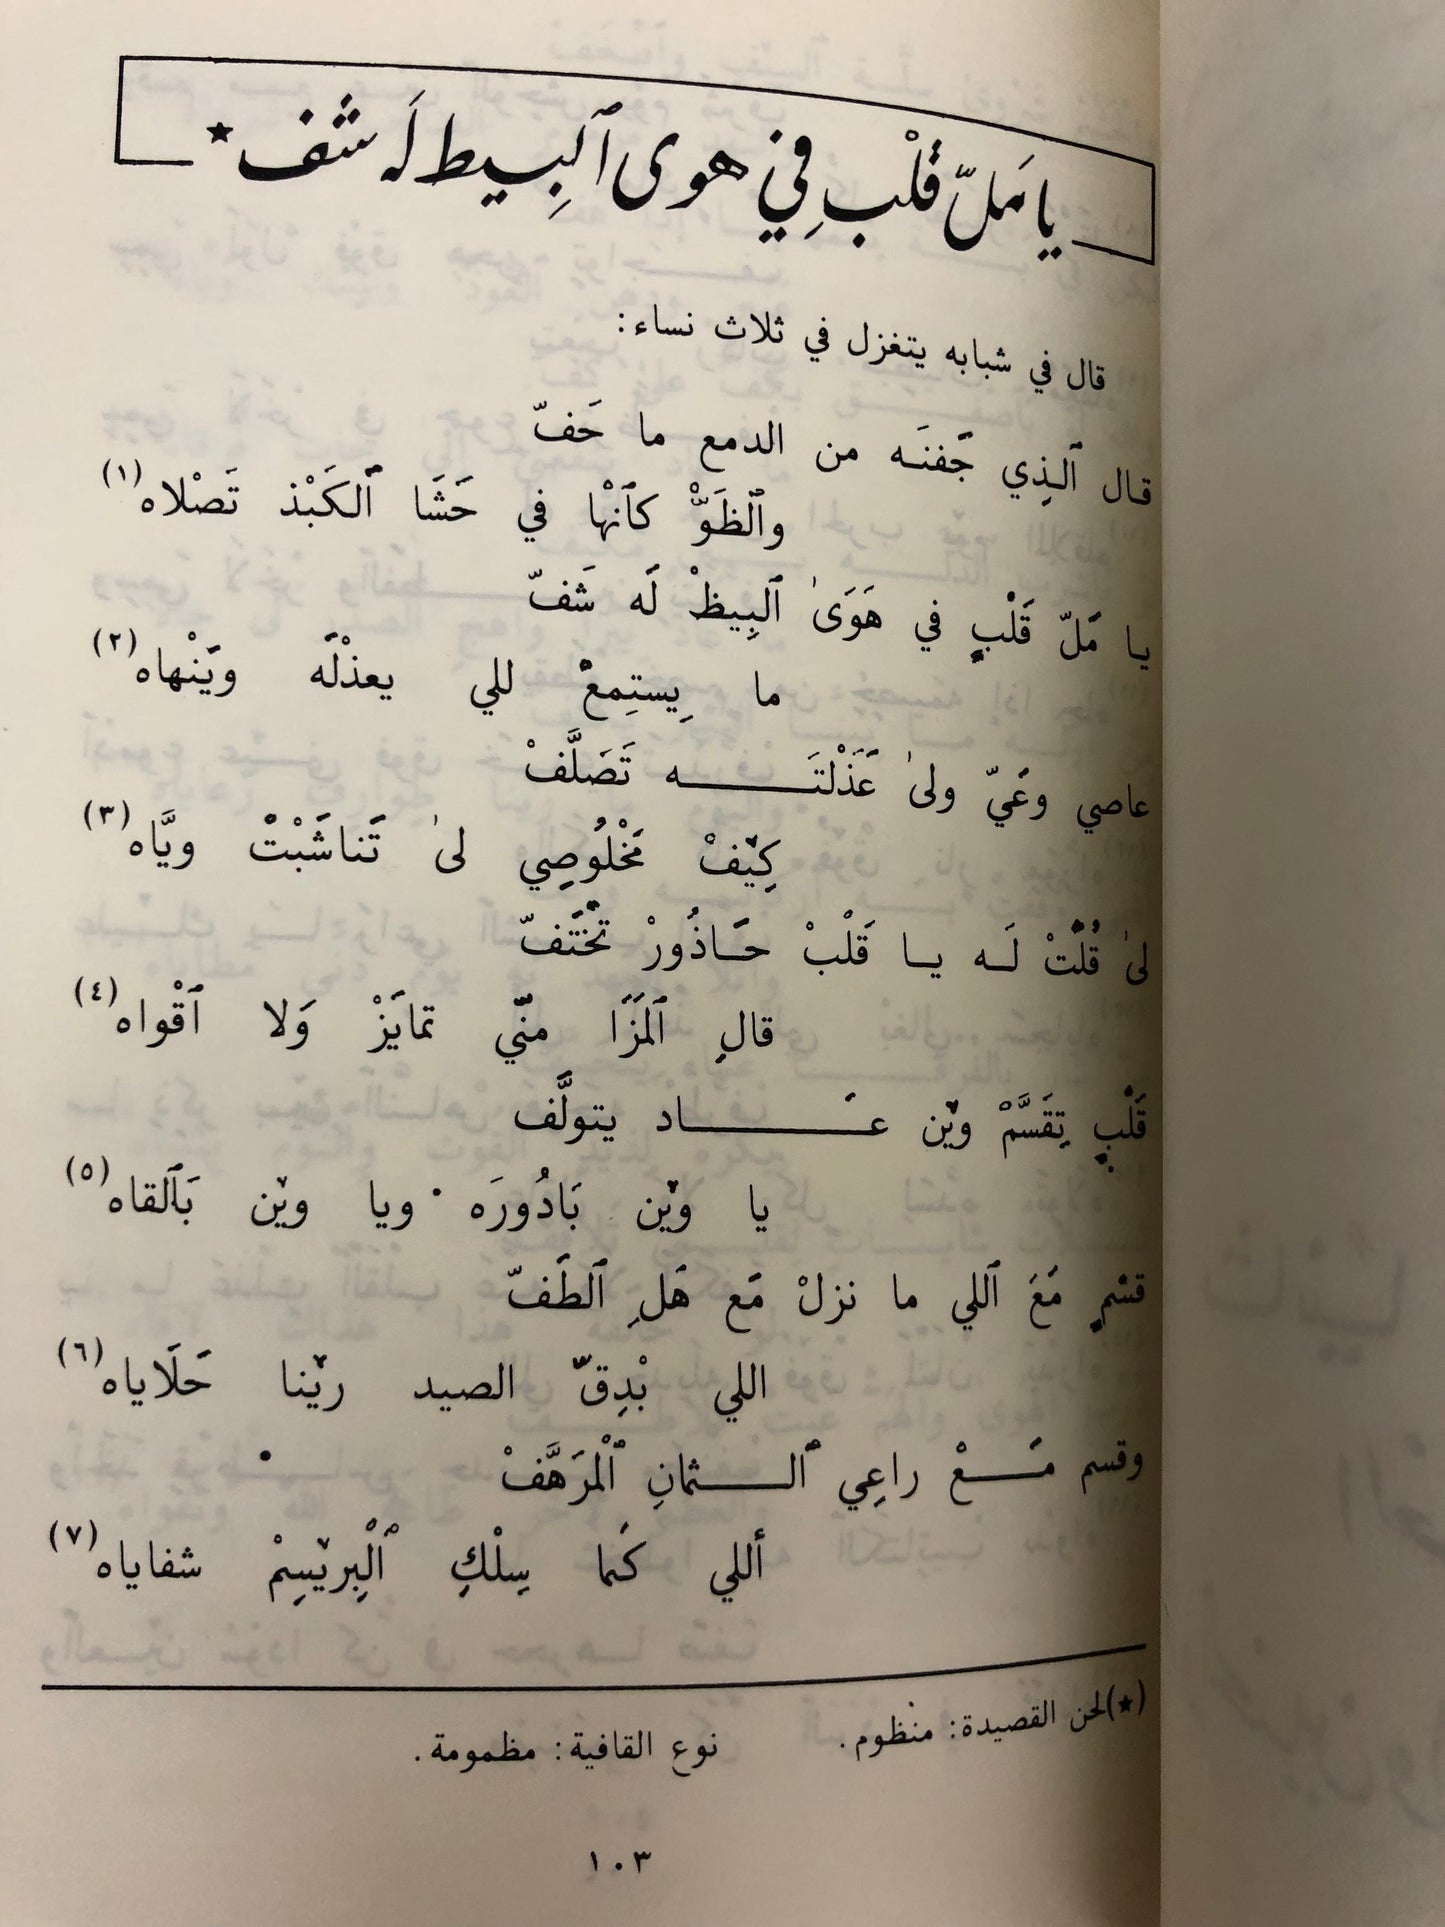 يا مَلّ قَلْب في هوى ٱلبِيط لَه شَف ★
قال في شبابه يتغزل في ثلاث نساء:
قال ٱلذِي جَفنَه من الدمع ما حَفّ
وٱلْظَوّْ كأنْها في حَشَا ٱلكَبْذ تَصْلاه (١)
يا مَلّ قَلْبٍ في هَوَىٰ ٱلبِيظْ لَه شَفّ
ما يِستِمعْ للي يعذْلَه ويَنْهاه (٢)
عاصي وعَيّ ولىٰ عَذَلْتَـــــــه تَصَلَّفْ
كِيْفْ مَخْلُوصِي لىٰ تَناشَبْتْ ويَّاه (٣)
لىٰ قُلْتْ لَــه يــا قَلْبْ حَــاذُورْ تْخْتَفّ
قالِ ٱلمَزَا منّي تمايَزْ وَلا ٱقْواه (٤)
قَلْبٍ تِقَسَّمْ ويْن عَـــــــاد يتولَّف
يا ويْن بَادُورَه ويا ويْن بَٱلقاه (٥)
قسْمٍ مَعَ ٱللي ما نزلْ مَع هَلِ ٱلطَفّ
اللي بْدِقّ الصيد ريْنا حَلَاياه (٦)
وقسم مَـــعْ راعِي ٱلـــثمانِ ٱلْمرَهَّفْ
أللي كَما سِلْكِ ٱلْبِريْسِمْ شفاياه (٧)
(★) لحن القصيدة: منظوم. نوع القافية: مظمومة.
١٠٣